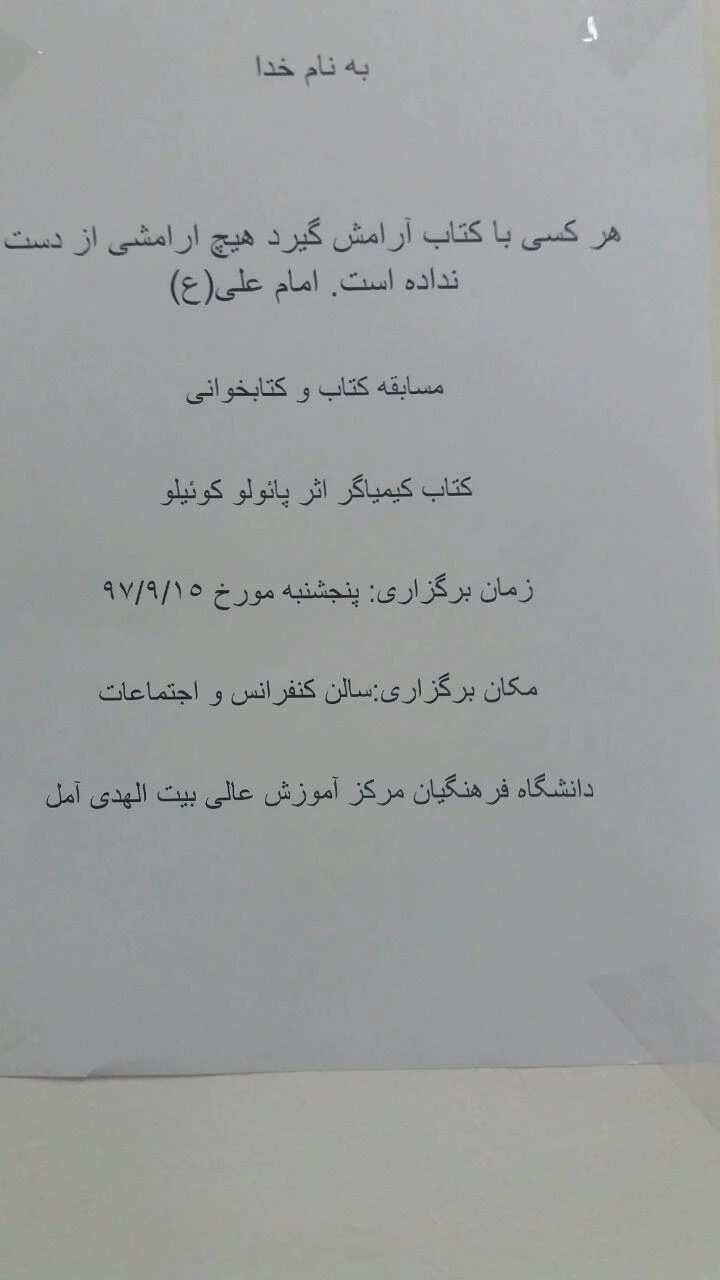 به نام خدا
هر کسی با کتاب آرامش گیرد هیچ ارامشی از دست
نداده است. امام علی(ع)
مسابقه کتاب و کتابخوانی
کتاب کیمیاگر اثر پائولو کوئیلو
زمان برگزاری: پنجشنبه مورخ ۹۷/۹/۱۵
مکان برگزاری:سالن کنفرانس و اجتماعات
دانشگاه فرهنگیان مرکز آموزش عالی بیت الهدی آمل